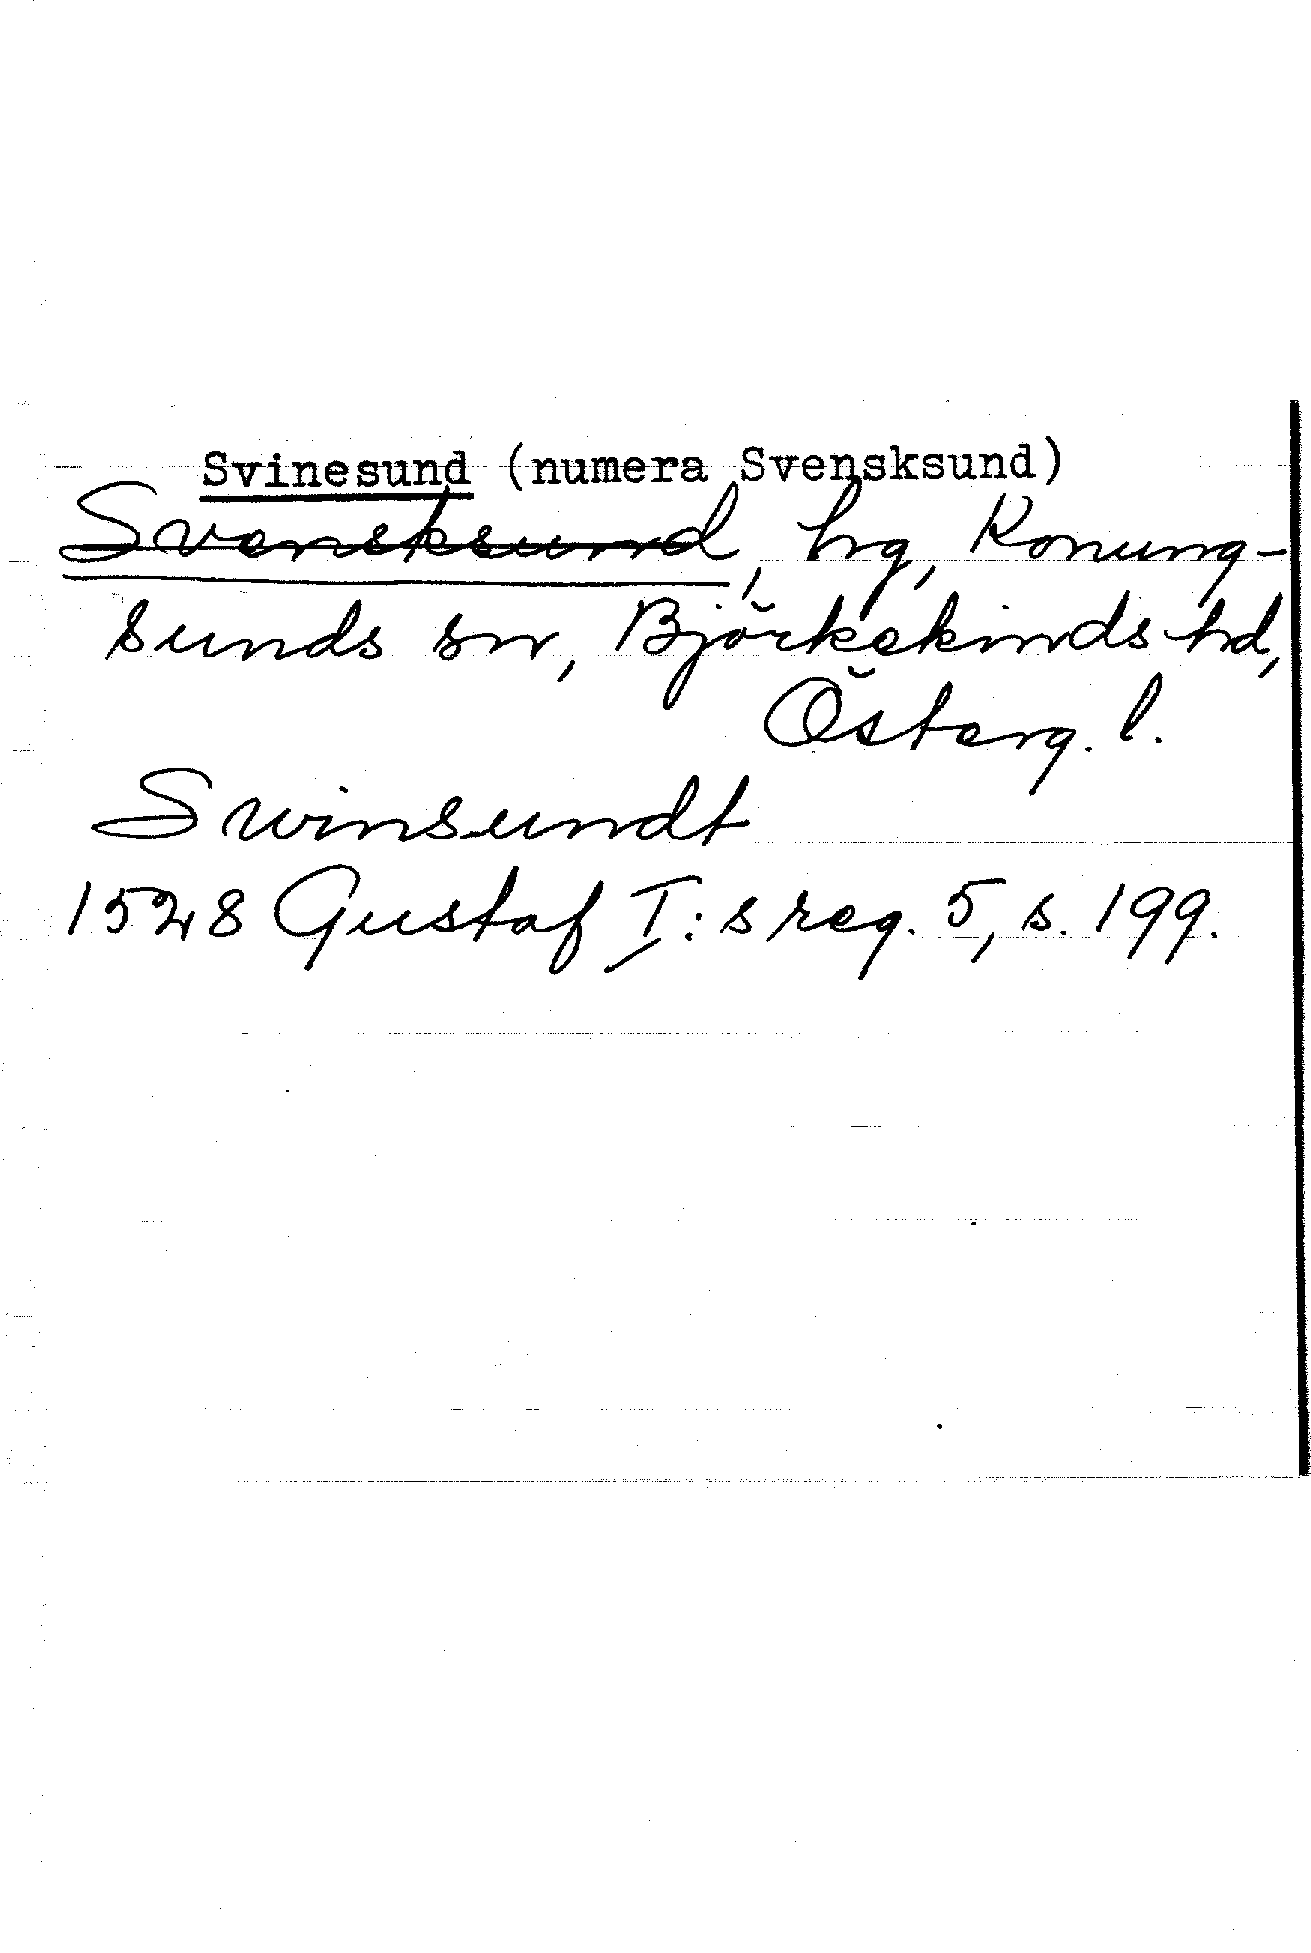 Svinesund (numera Svensksund)
Svensksund, hrg, Konung-
sunds sn, Björkekinds hd,
Österg. l.
Swinsundt
1528 Gustaf I:s reg. 5, s. 199.